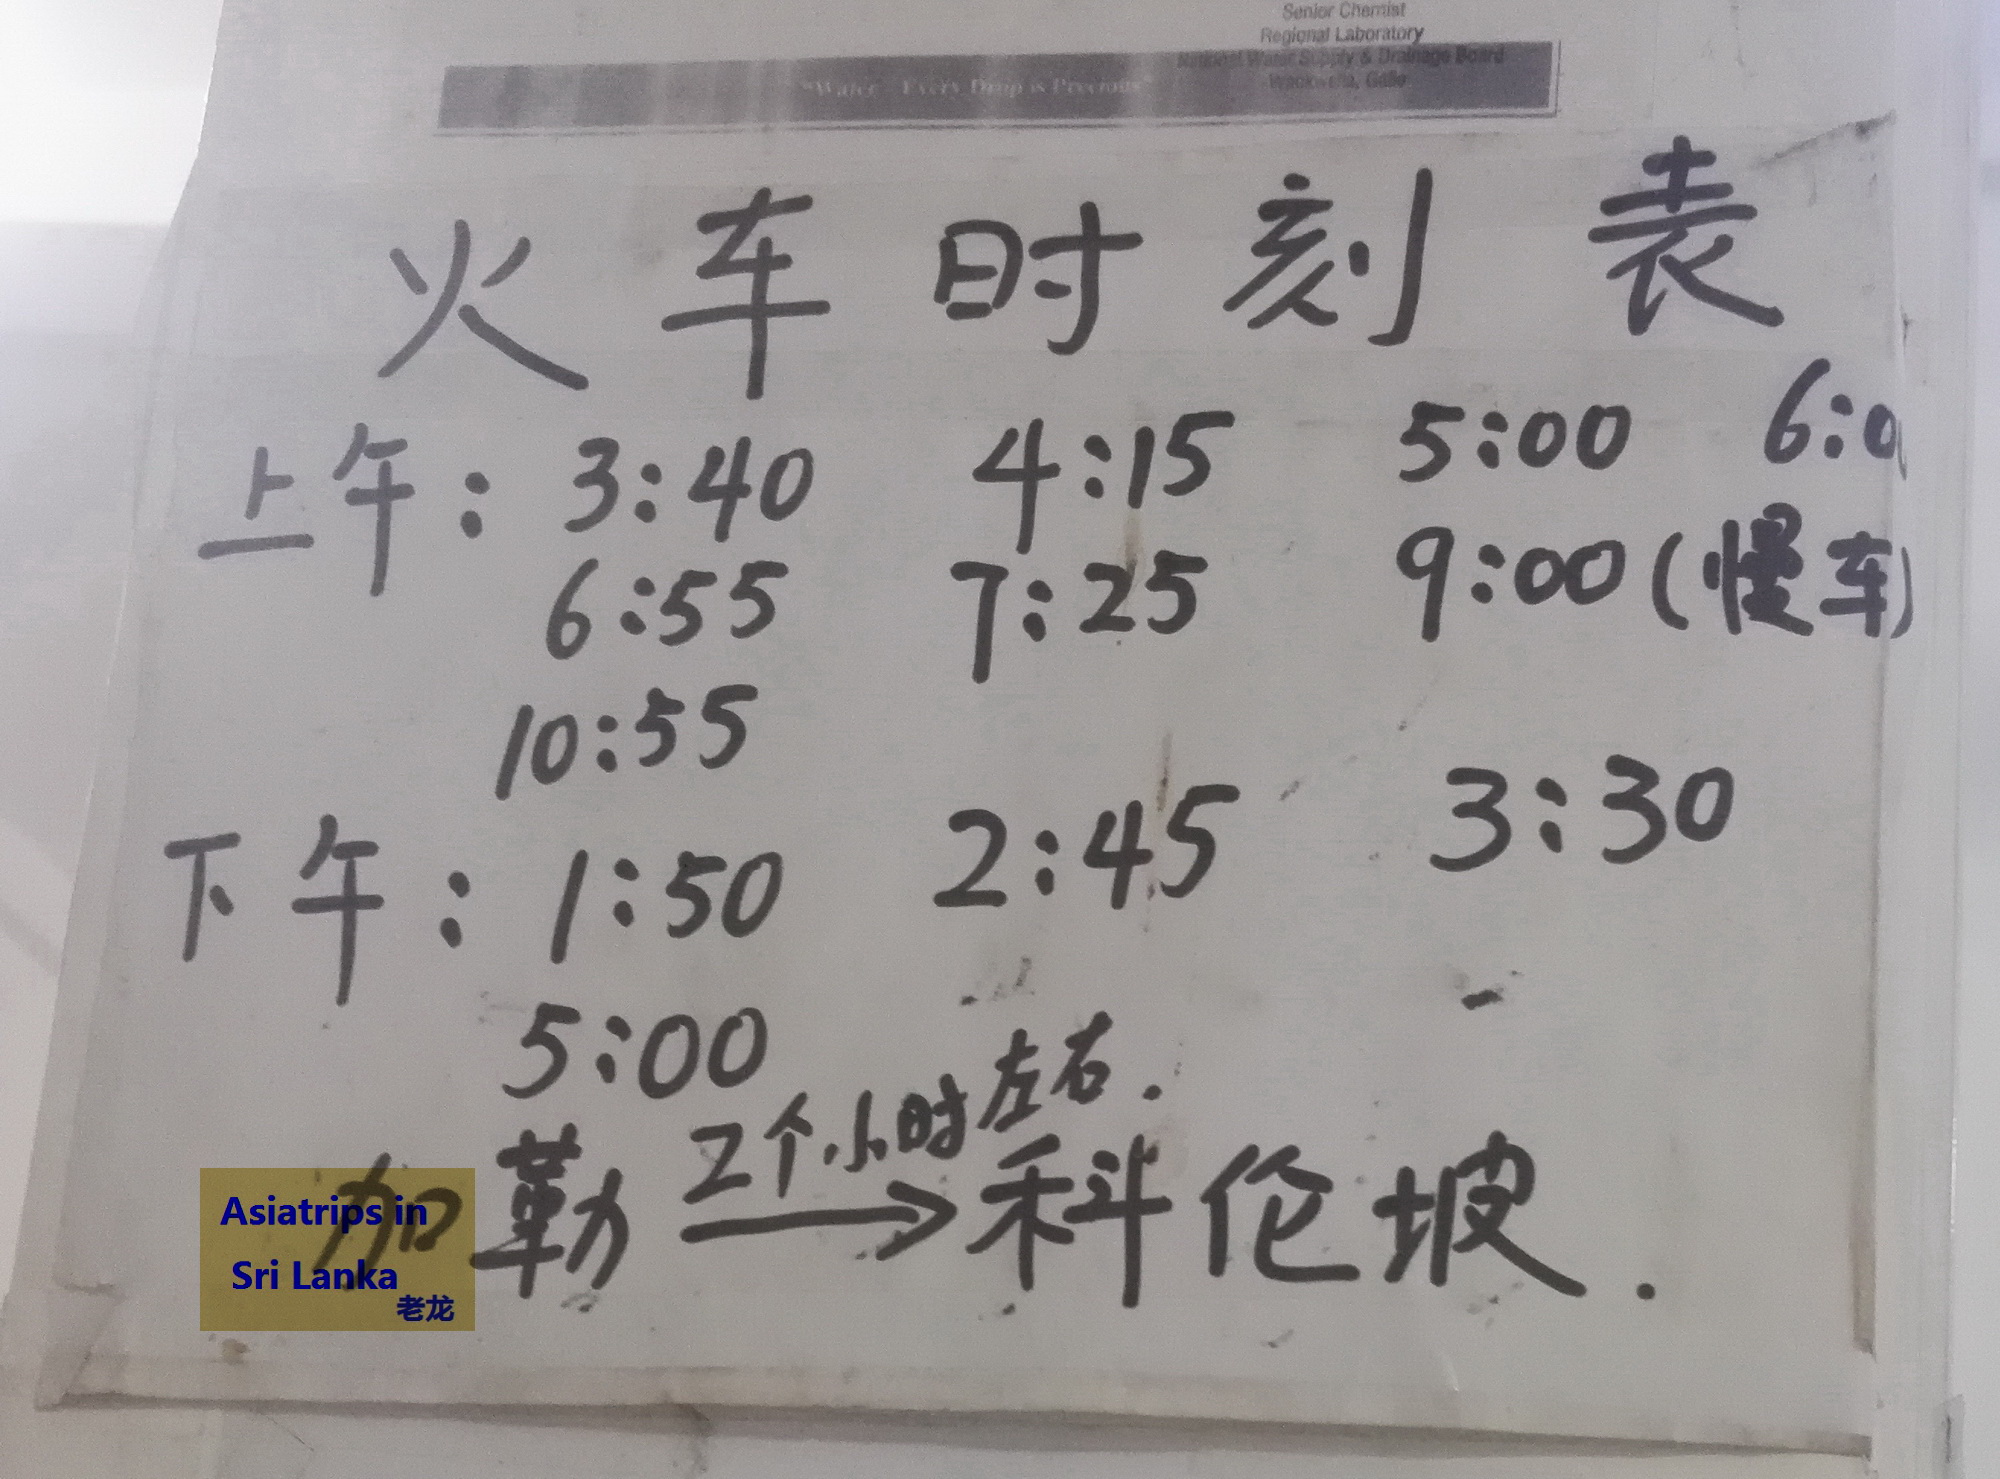 Senior Chemist
Regional Laboratory
National Water Supply & Drainage Board
Wackwella, Galle
"Water - Every Drop is Precious"
火车时刻表
上午: 3:40 4:15 5:00 6:0
6:55 7:25 9:00 (慢车)
10:55
下午: 1:50 2:45 3:30
5:00
2个小时左右.
加勒 → 科伦坡.
Asiatrips in
Sri Lanka
老龙